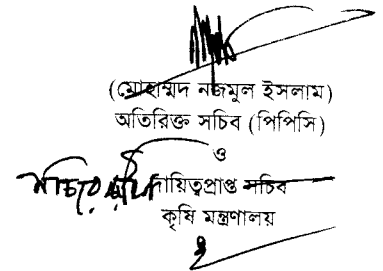 (মোহাম্মদ নজমুল ইসলাম)
অতিরিক্ত সচিব (পিপিসি)
ও
দায়িত্বপ্রাপ্ত সচিব
কৃষি মন্ত্রণালয়